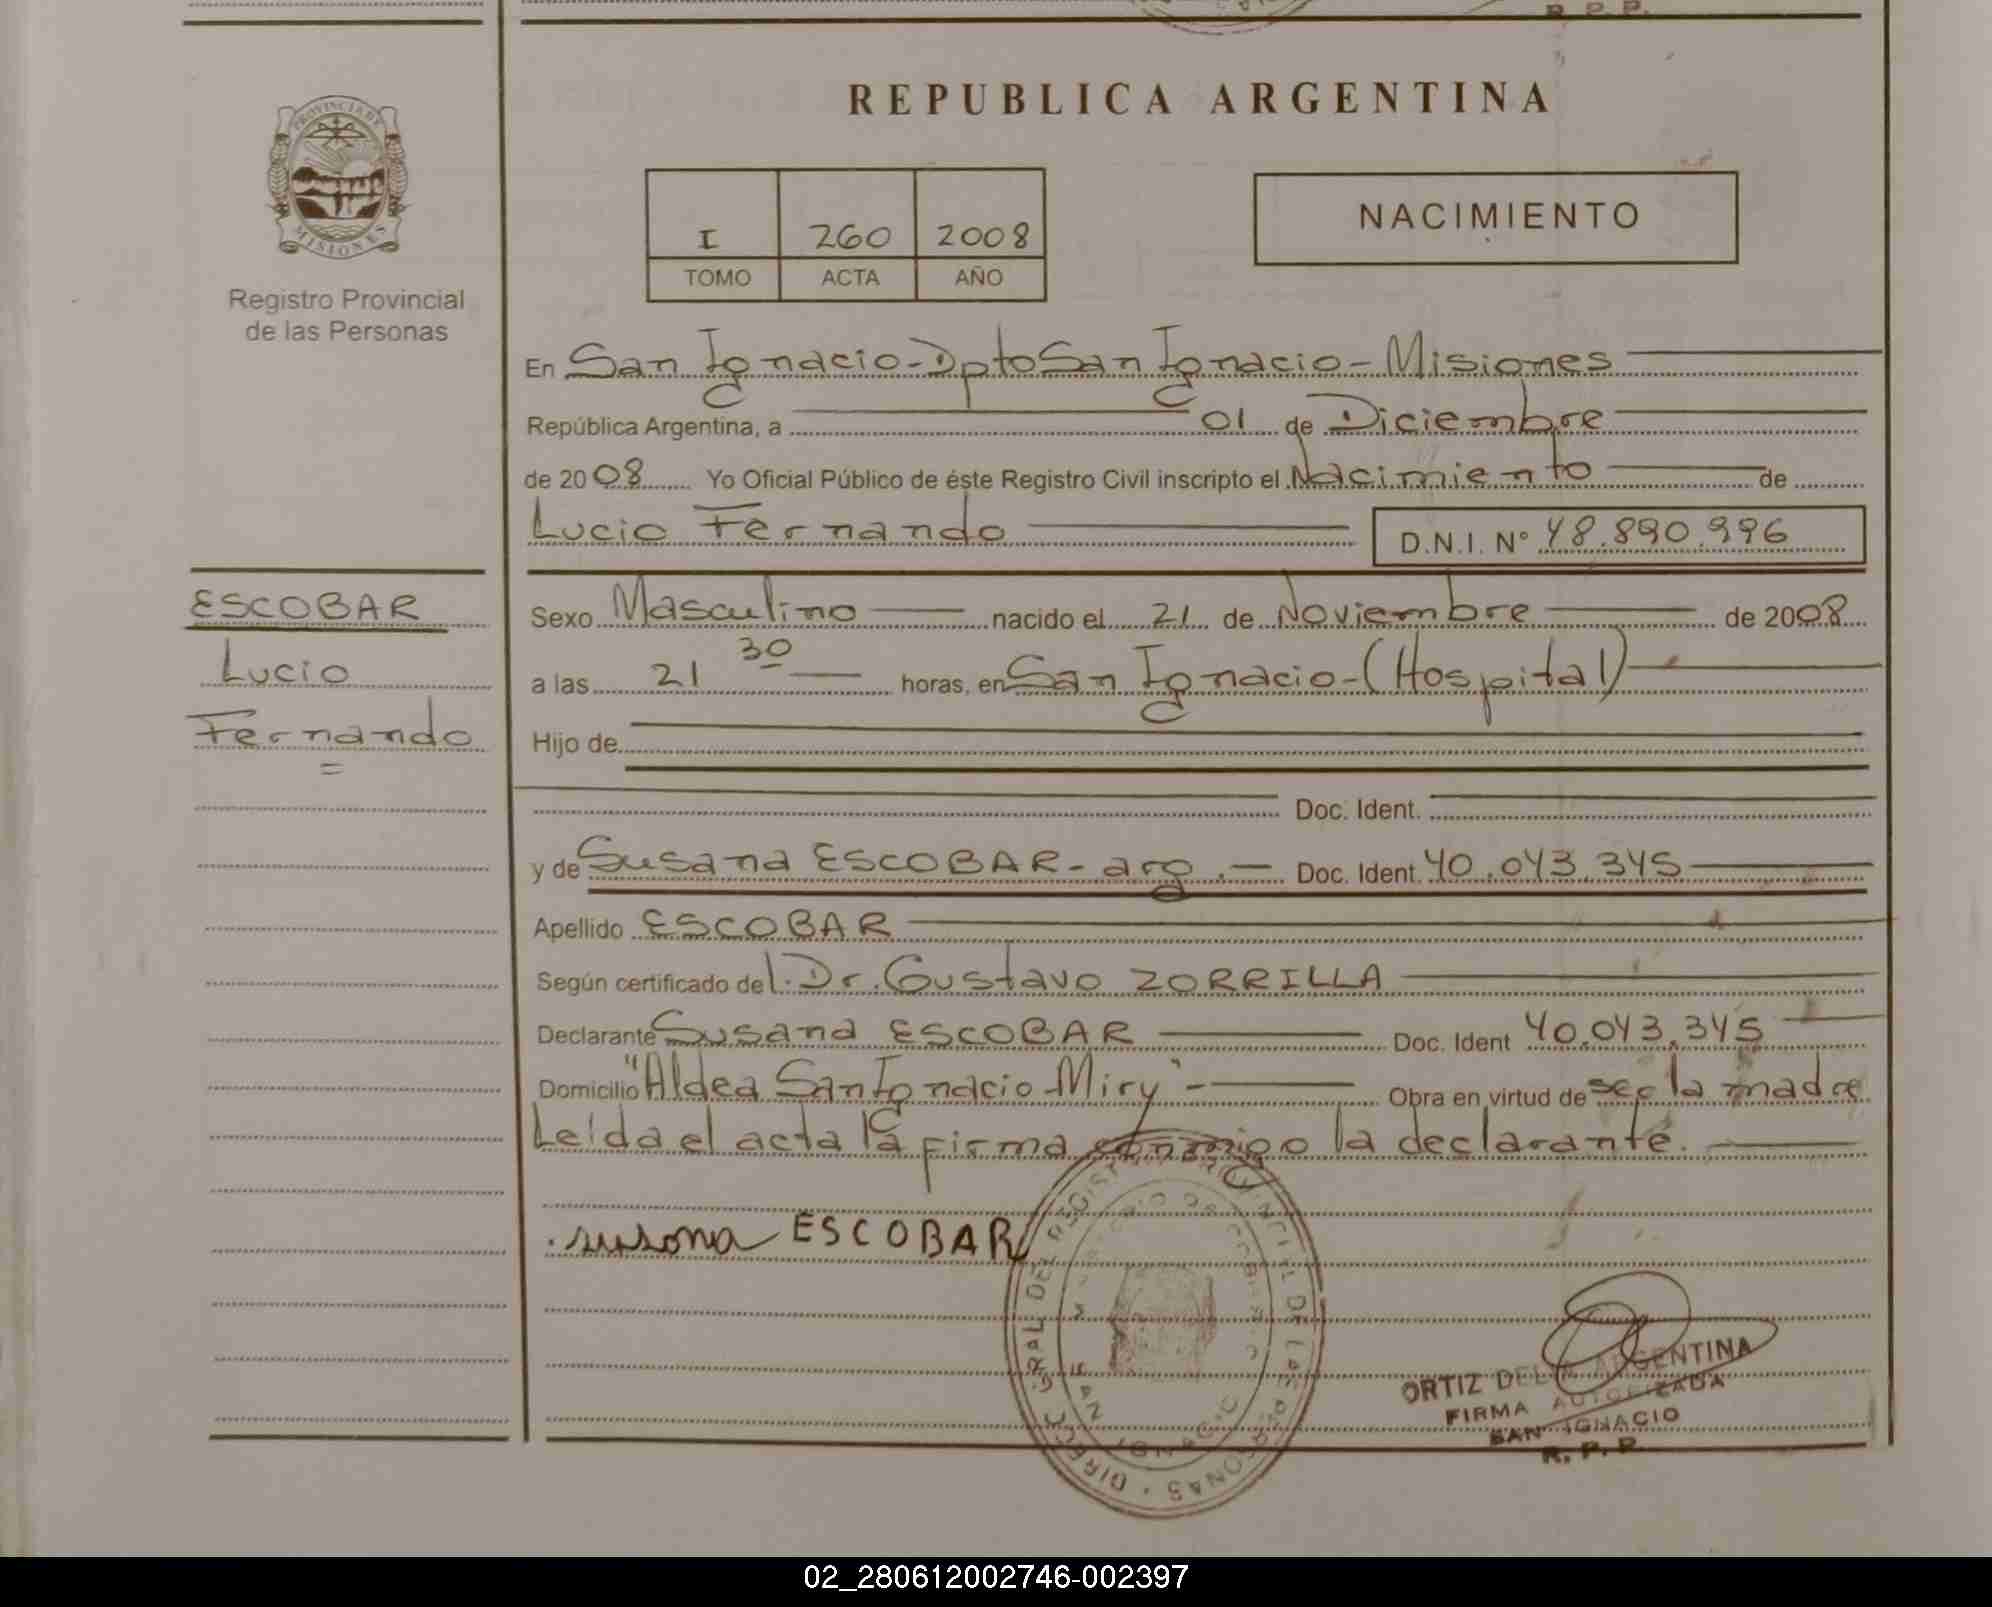 R. P. P.
REPUBLICA ARGENTINA
PROVINCIA DE
MISIONES
Registro Provincial
de las Personas
I 260 2008
TOMO ACTA AÑO
NACIMIENTO
En San Ignacio-Dpto San Ignacio-Misiones
República Argentina, a 01 de Diciembre
de 2008 Yo Oficial Público de éste Registro Civil inscripto el Nacimiento de
Lucio Fernando D.N.I. N° 48.890.996
ESCOBAR
Lucio
Fernando
Sexo Masculino nacido el 21 de Noviembre de 2008
a las 21 30 horas, en San Ignacio-(Hospital)
Hijo de
Doc. Ident.
y de Susana ESCOBAR-arg.- Doc. Ident. 40.043.345
Apellido ESCOBAR
Según certificado del. Dr. Gustavo ZORRILLA
Declarante Susana ESCOBAR Doc. Ident 40.043.345
Domicilio "Aldea San Ignacio Miry"- Obra en virtud de ser la madre
Leida el acta la firma conmigo la declarante.
susana ESCOBAR
DIRECC. GRAL DEL REGISTRO PROVINCIAL DE LAS PERSONAS
SAN IGNACIO
ORTIZ DELIA ARGENTINA
FIRMA AUTORIZADA
SAN IGNACIO
R. P. P.
02_280612002746-002397